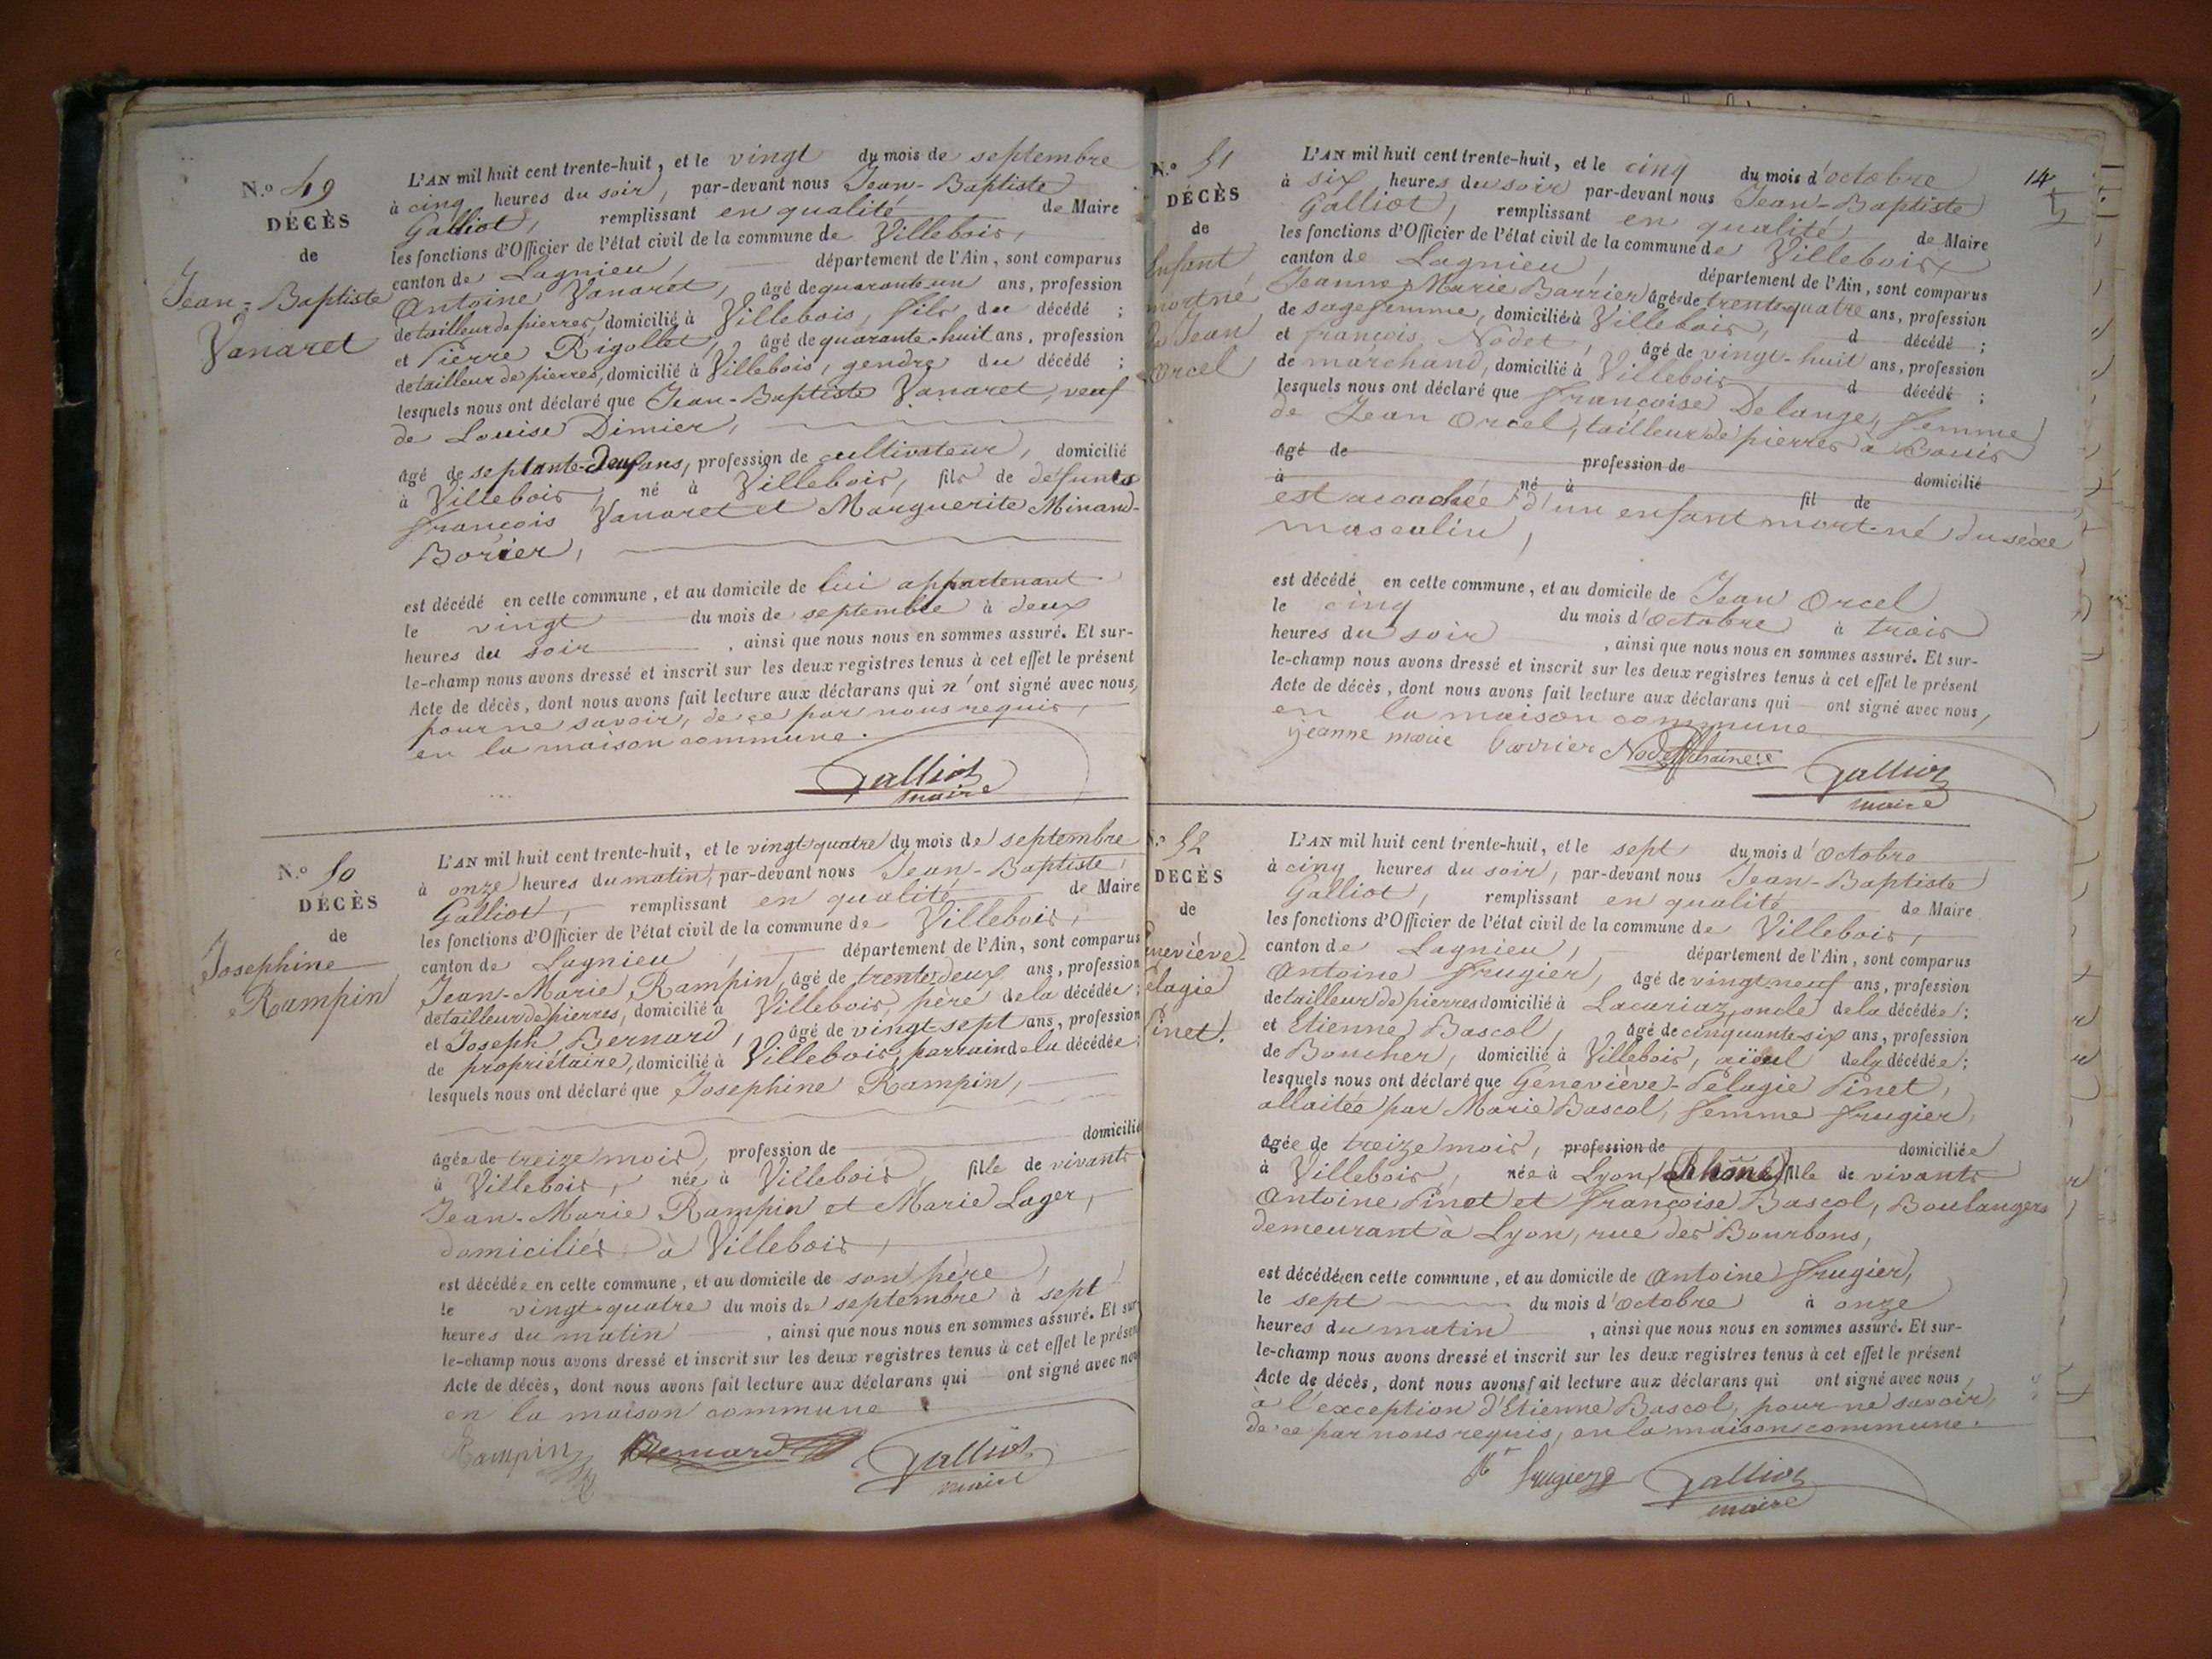 N.o 49
DÉCÈS
de
Jean-Baptiste
Vanaret
L'AN mil huit cent trente-huit, et le vingt du mois de septembre
à cinq heures du soir, par-devant nous Jean-Baptiste
Galliot, remplissant en qualité de Maire
les fonctions d'Officier de l'état civil de la commune de Villebois,
canton de Lagnieu, département de l'Ain, sont comparus
Antoine Vanaret, âgé de quarante un ans, profession
de tailleur de pierres, domicilié à Villebois, fils du décédé ;
et Pierre Rigollet, âgé de quarante-huit ans, profession
de tailleur de pierres, domicilié à Villebois, gendre du décédé ;
lesquels nous ont déclaré que Jean-Baptiste Vanaret, veuf
de Louise Dimier,
âgé de septante-deux ans, profession de cultivateur, domicilié
à Villebois, né à Villebois, fils de défunts
françois Vanaret et Marguerite Minand-
Borier,
est décédé en cette commune, et au domicile de lui appartenant
le vingt du mois de septembre à deux
heures du soir, ainsi que nous nous en sommes assuré. Et sur-
le-champ nous avons dressé et inscrit sur les deux registres tenus à cet effet le présent
Acte de décès, dont nous avons fait lecture aux déclarans qui n'ont signé avec nous,
pour ne savoir, de ce par nous requis,
en la maison commune.
Galliot
maire
N.o 50
DÉCÈS
de
Josephine
Rampin
L'AN mil huit cent trente-huit, et le vingt-quatre du mois de septembre
à onze heures du matin, par-devant nous Jean-Baptiste
Galliot, remplissant en qualité de Maire
les fonctions d'Officier de l'état civil de la commune de Villebois,
canton de Lagnieu, département de l'Ain, sont comparus
Jean-Marie Rampin, âgé de trente-deux ans, profession
de tailleur de pierres, domicilié à Villebois, père de la décédée ;
et Joseph Bernard, âgé de vingt-sept ans, profession
de propriétaire, domicilié à Villebois, parrain de la décédée ;
lesquels nous ont déclaré que Josephine Rampin,
âgée de treize mois, profession de domicilié
à Villebois, née à Villebois, fille de vivants
Jean-Marie Rampin et Marie Lager,
domiciliés à Villebois,
est décédée en cette commune, et au domicile de son père,
le vingt-quatre du mois de septembre à sept
heures du matin, ainsi que nous nous en sommes assuré. Et sur
le-champ nous avons dressé et inscrit sur les deux registres tenus à cet effet le présen
Acte de décès, dont nous avons fait lecture aux déclarans qui ont signé avec nou
en la maison commune
Rampin Bernard Galliot
maire
14
N.o 51
DÉCÈS
de
Enfant
mort né
de Jean
Orcel
L'AN mil huit cent trente-huit, et le cinq du mois d'octobre
à six heures du soir par-devant nous Jean-Baptiste
Galliot, remplissant en qualité de Maire
les fonctions d'Officier de l'état civil de la commune de Villebois
canton de Lagnieu, département de l'Ain, sont comparus
Jeanne Marie Barrier âgée de trente-quatre ans, profession
de sage femme, domiciliée à Villebois, d décédé ;
et françois Nodet, âgé de vingt-huit ans, profession
de marchand, domicilié à Villebois d décédé ;
lesquels nous ont déclaré que françoise Delange, femme
de Jean Orcel, tailleur de pierres à Bouis
âgé de profession de domicilié
à né à fil de
est accouchée d'un enfant mort-né du sèxe
masculin,
est décédé en cette commune, et au domicile de Jean Orcel
le cinq du mois d'octobre à trois
heures du soir, ainsi que nous nous en sommes assuré. Et sur-
le-champ nous avons dressé et inscrit sur les deux registres tenus à cet effet le présent
Acte de décès, dont nous avons fait lecture aux déclarans qui ont signé avec nous,
en la maison commune
jeanne marie barrier Nodet Galliot
maire
N.o 52
DÉCÈS
de
eneviève
elagie
Pinet.
L'AN mil huit cent trente-huit, et le sept du mois d'Octobre
à cinq heures du soir, par-devant nous Jean-Baptiste
Galliot, remplissant en qualité de Maire
les fonctions d'Officier de l'état civil de la commune de Villebois,
canton de Lagnieu, département de l'Ain, sont comparus
Antoine frugier, âgé de vingt neuf ans, profession
de tailleur de pierres domicilié à Lacariaz, oncle de la décédée ;
et Etienne Bascol, âgé de cinquante-six ans, profession
de Boucher, domicilié à Villebois, aïeul de la décédée ;
lesquels nous ont déclaré que Geneviève-Pélagie Pinet,
allaitée par Marie Bascol, femme frugier,
âgée de treize mois, profession de domiciliée
à Villebois, née à Lyon (Rhône) fille de vivants
Antoine Pinet et françoise Bascol, Boulangers
demeurant à Lyon, rue des Bourbons,
est décédée en cette commune, et au domicile de Antoine frugier,
le sept du mois d'Octobre à onze
heures du matin, ainsi que nous nous en sommes assuré. Et sur-
le-champ nous avons dressé et inscrit sur les deux registres tenus à cet effet le présent
Acte de décès, dont nous avons fait lecture aux déclarans qui ont signé avec nous,
à l'exception d'Etienne Bascol, pour ne savoir,
de ce par nous requis, en la maison commune.
frugier Galliot
maire